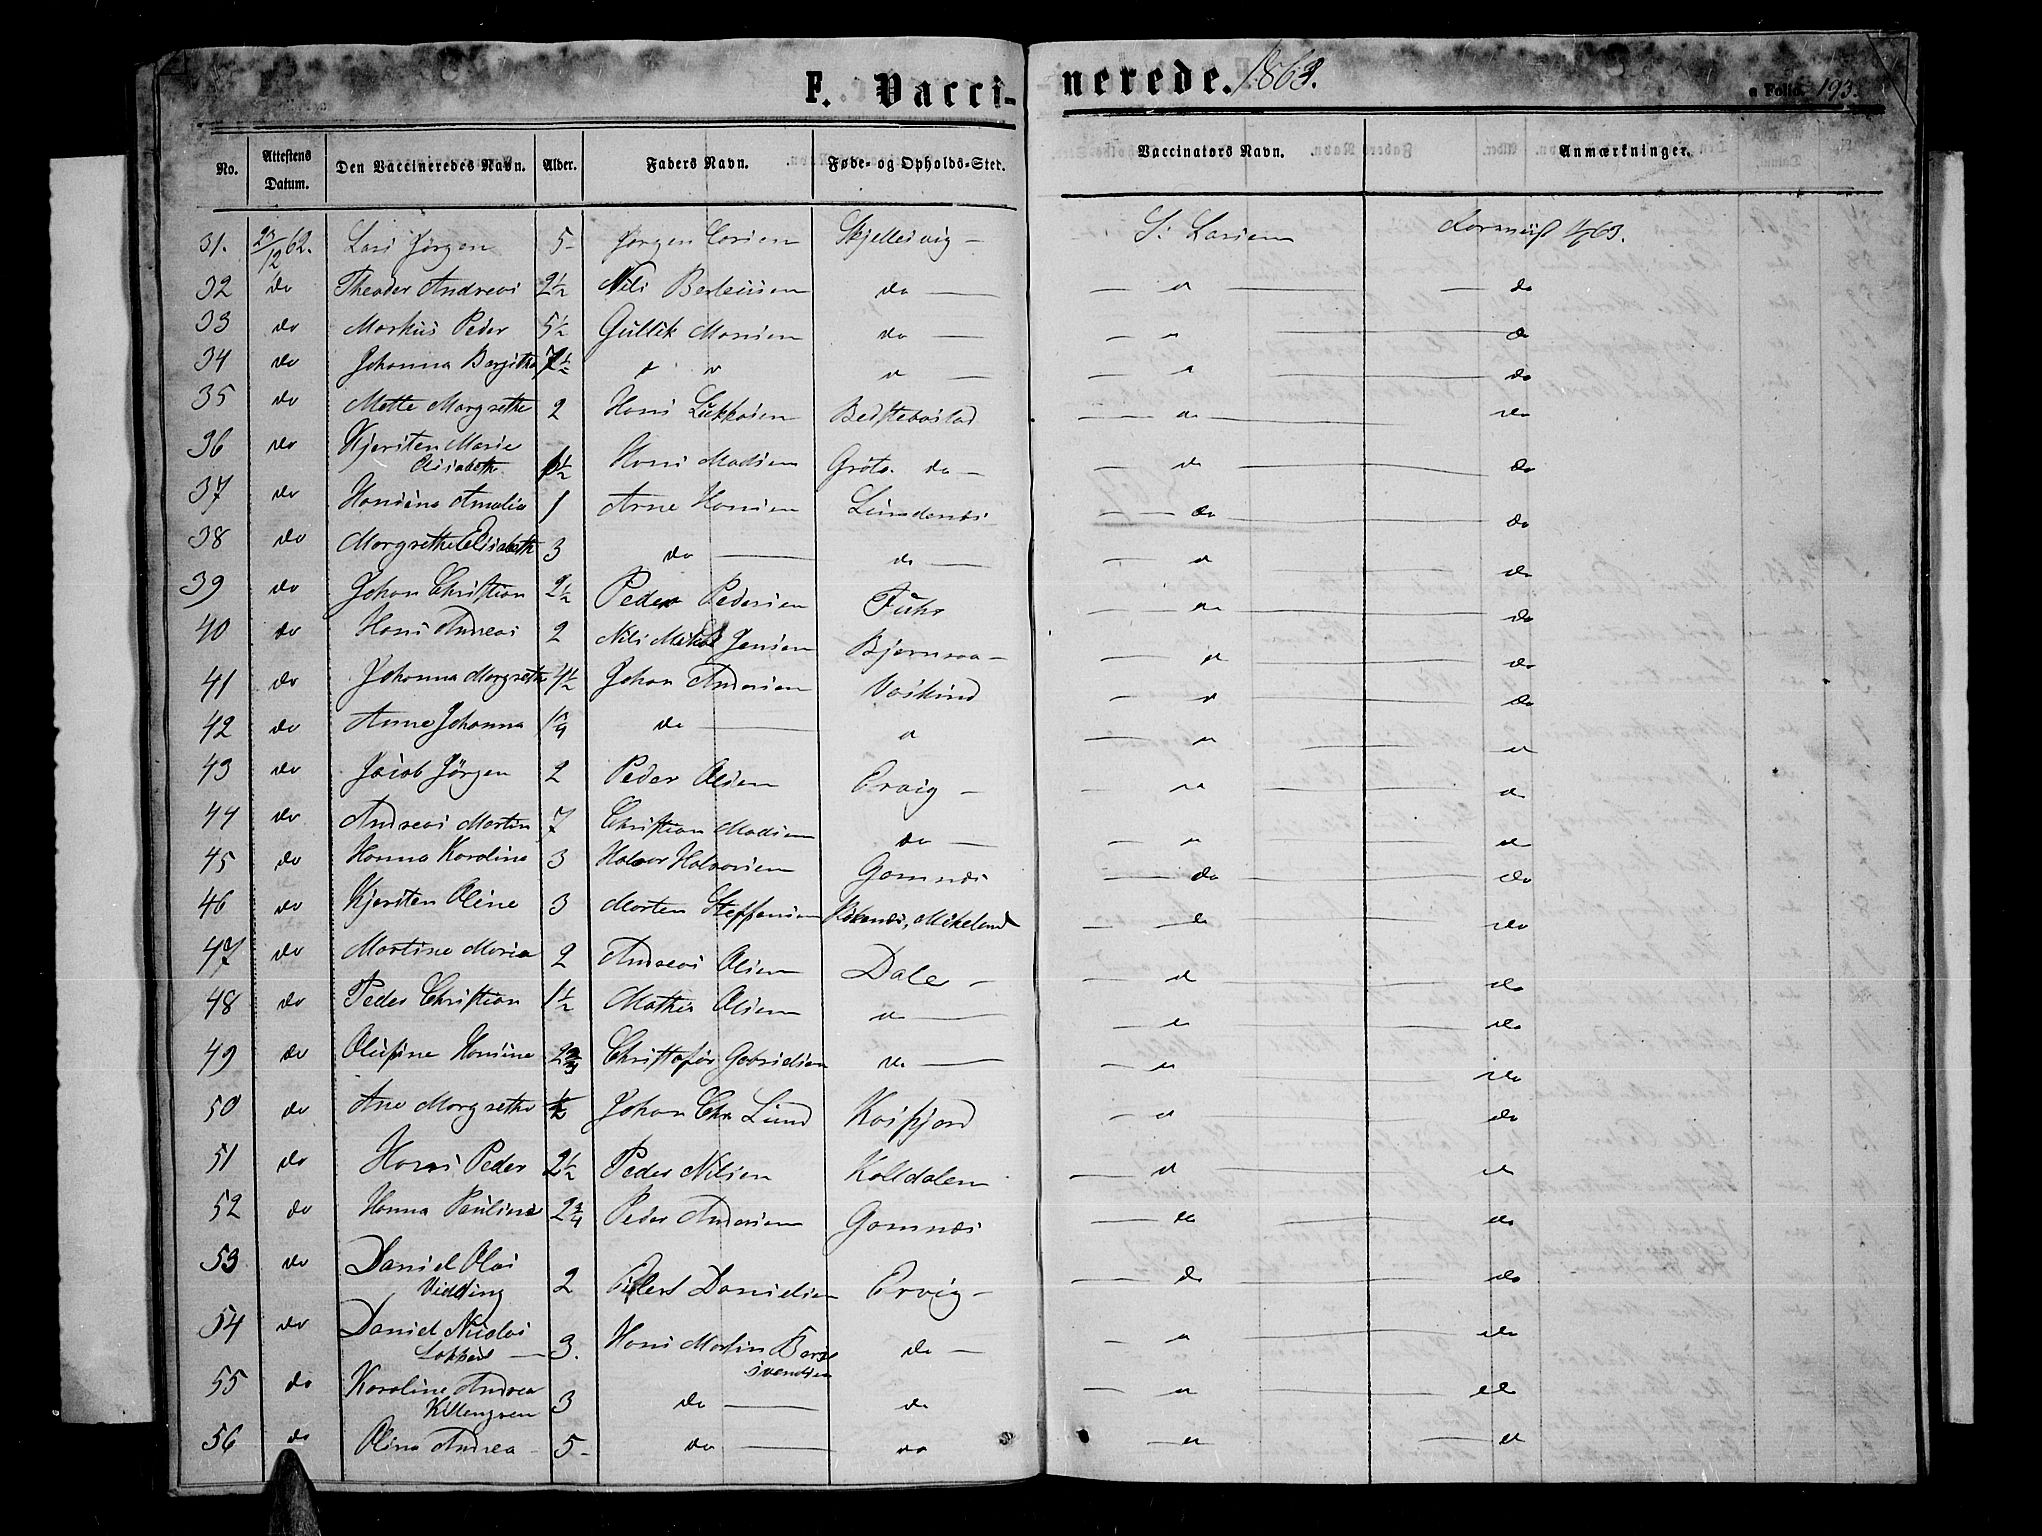 F. Vaccinerede. 1862.
Folio 193.
No. Attestens Datum. Den Vaccineredes Navn. Alder. Faders Navn. Føde- og Opholds-Sted. Vaccinators Navn. Anmærkninger.
31. 23/12 62. Lars Jørgen 5 - Jørgen Larsen Skjellesvig - S. Larsen
32 do Theodor Andreas 2½ Nils Berteusen do — " — do
33 do Markus Peder 5½ Gullik Monsen do — " — do
34 do Johanna Bergithe 7½ " " " — " — do
35 do Mette Margrethe 2 Hans Lukkasen " — do
36 do Kjersten Marie
Elisabeth 1½ Hans Madsen Grøts. do - — do — do
37 do Hansine Amalie 1 Arne Hansen Lundenes — do — do
38 do Margrethe Elisabeth 3 do — do — " — do
39 do Johan Christian 2½ Peder Pedersen " — do
40 do Hans Andreas 2 Nils Mikal Jensen Bjørnraa - " — do
41 do Johanna Margrethe 4½ Johan Andersen Vaskind " — do
42 do Anne Johanna do — " — " — "
43 do Jacob Jørgen 2 Peder Olsen Ervig - " — "
44 do Andreas Martin 7 Christian Madsen do — " — do
45 do Hanna Karoline 3 Halvor Halvorsen Gamnes — do — do
46 do Kjersten Oline 3 Morten Steffensen — do — do
47 do Martine Maria 2 Andreas Olsen Dale - " — do
48 do Peder Christian 1½ Mathis Olsen do — " — do
49 do Olufine Hansine 2¾ Christofer Gabrielsen do — " — do
50 do Ane Margrethe ½ Johan Chr Lund Kasfjord " — do
51 do Hans Peder 2½ Peder Nilsen Kolldalen " — "
52 do Hanna Pauline 2¾ Peder Andersen Gamnes — do — do
53 do Daniel Olai
Vidding 2 Eilert Danielsen Ervig - — do — do
54 do Daniel Nicolai
3. Hans Martin
do — " — do
55 do Karoline Andrea
3 do — do — " — do
56 do Oline Andrea - 5 - do — do — " — "